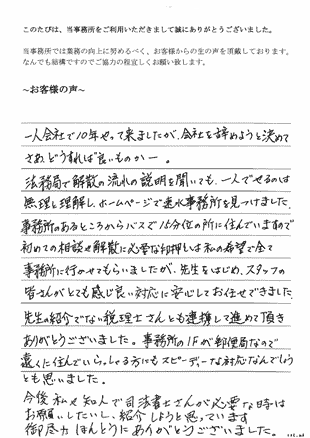 このたびは、当事務所をご利用いただきまして誠にありがとうございました。
当事務所では業務の向上に努めるべく、お客様からの生の声を頂戴しております。
なんでも結構ですのでご協力の程宜しくお願い致します。
～お客様の声～
一人会社で10年やって来ましたが、会社を辞めようと決めて
さあ、どうすれば良いものかー。
法務局で解散の流れの説明を聞いても、一人でやるのは
無理と理解し、ホームページで速水事務所を見つけました。
事務所のあるところからバスで15分位の所に住んでいますので
初めての相談や解散に必要な印押しは私の希望で全て
事務所に行かせてもらいましたが、先生をはじめ、スタッフの
皆さんがとても感じ良い対応に安心してお任せできました。
先生の紹介でない税理士さんとも連携して進めて頂き
ありがとうございました。事務所の1Fが郵便局なので
遠くに住んでいらっしゃる方にもスピーデーな対応なんでしょう
とも思いました。
今後私や知人で司法書士さんが必要な時は
お願いしたいし、紹介しようと思っています
御尽力ほんとうにありがとうございました。